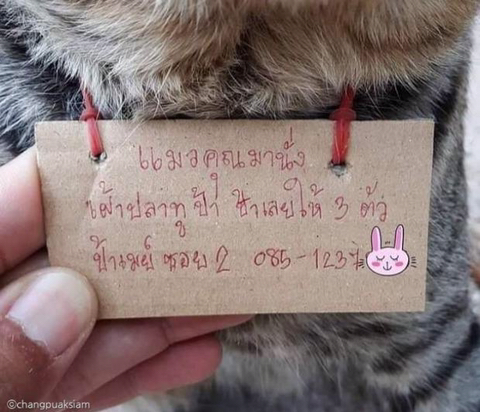 แมวคุณมานั่ง
เฝ้าปลาทูป้า ป้าเลยให้ 3 ตัว
ป้าเมย์ ซอย 2 085-1237
©changpuaksiam